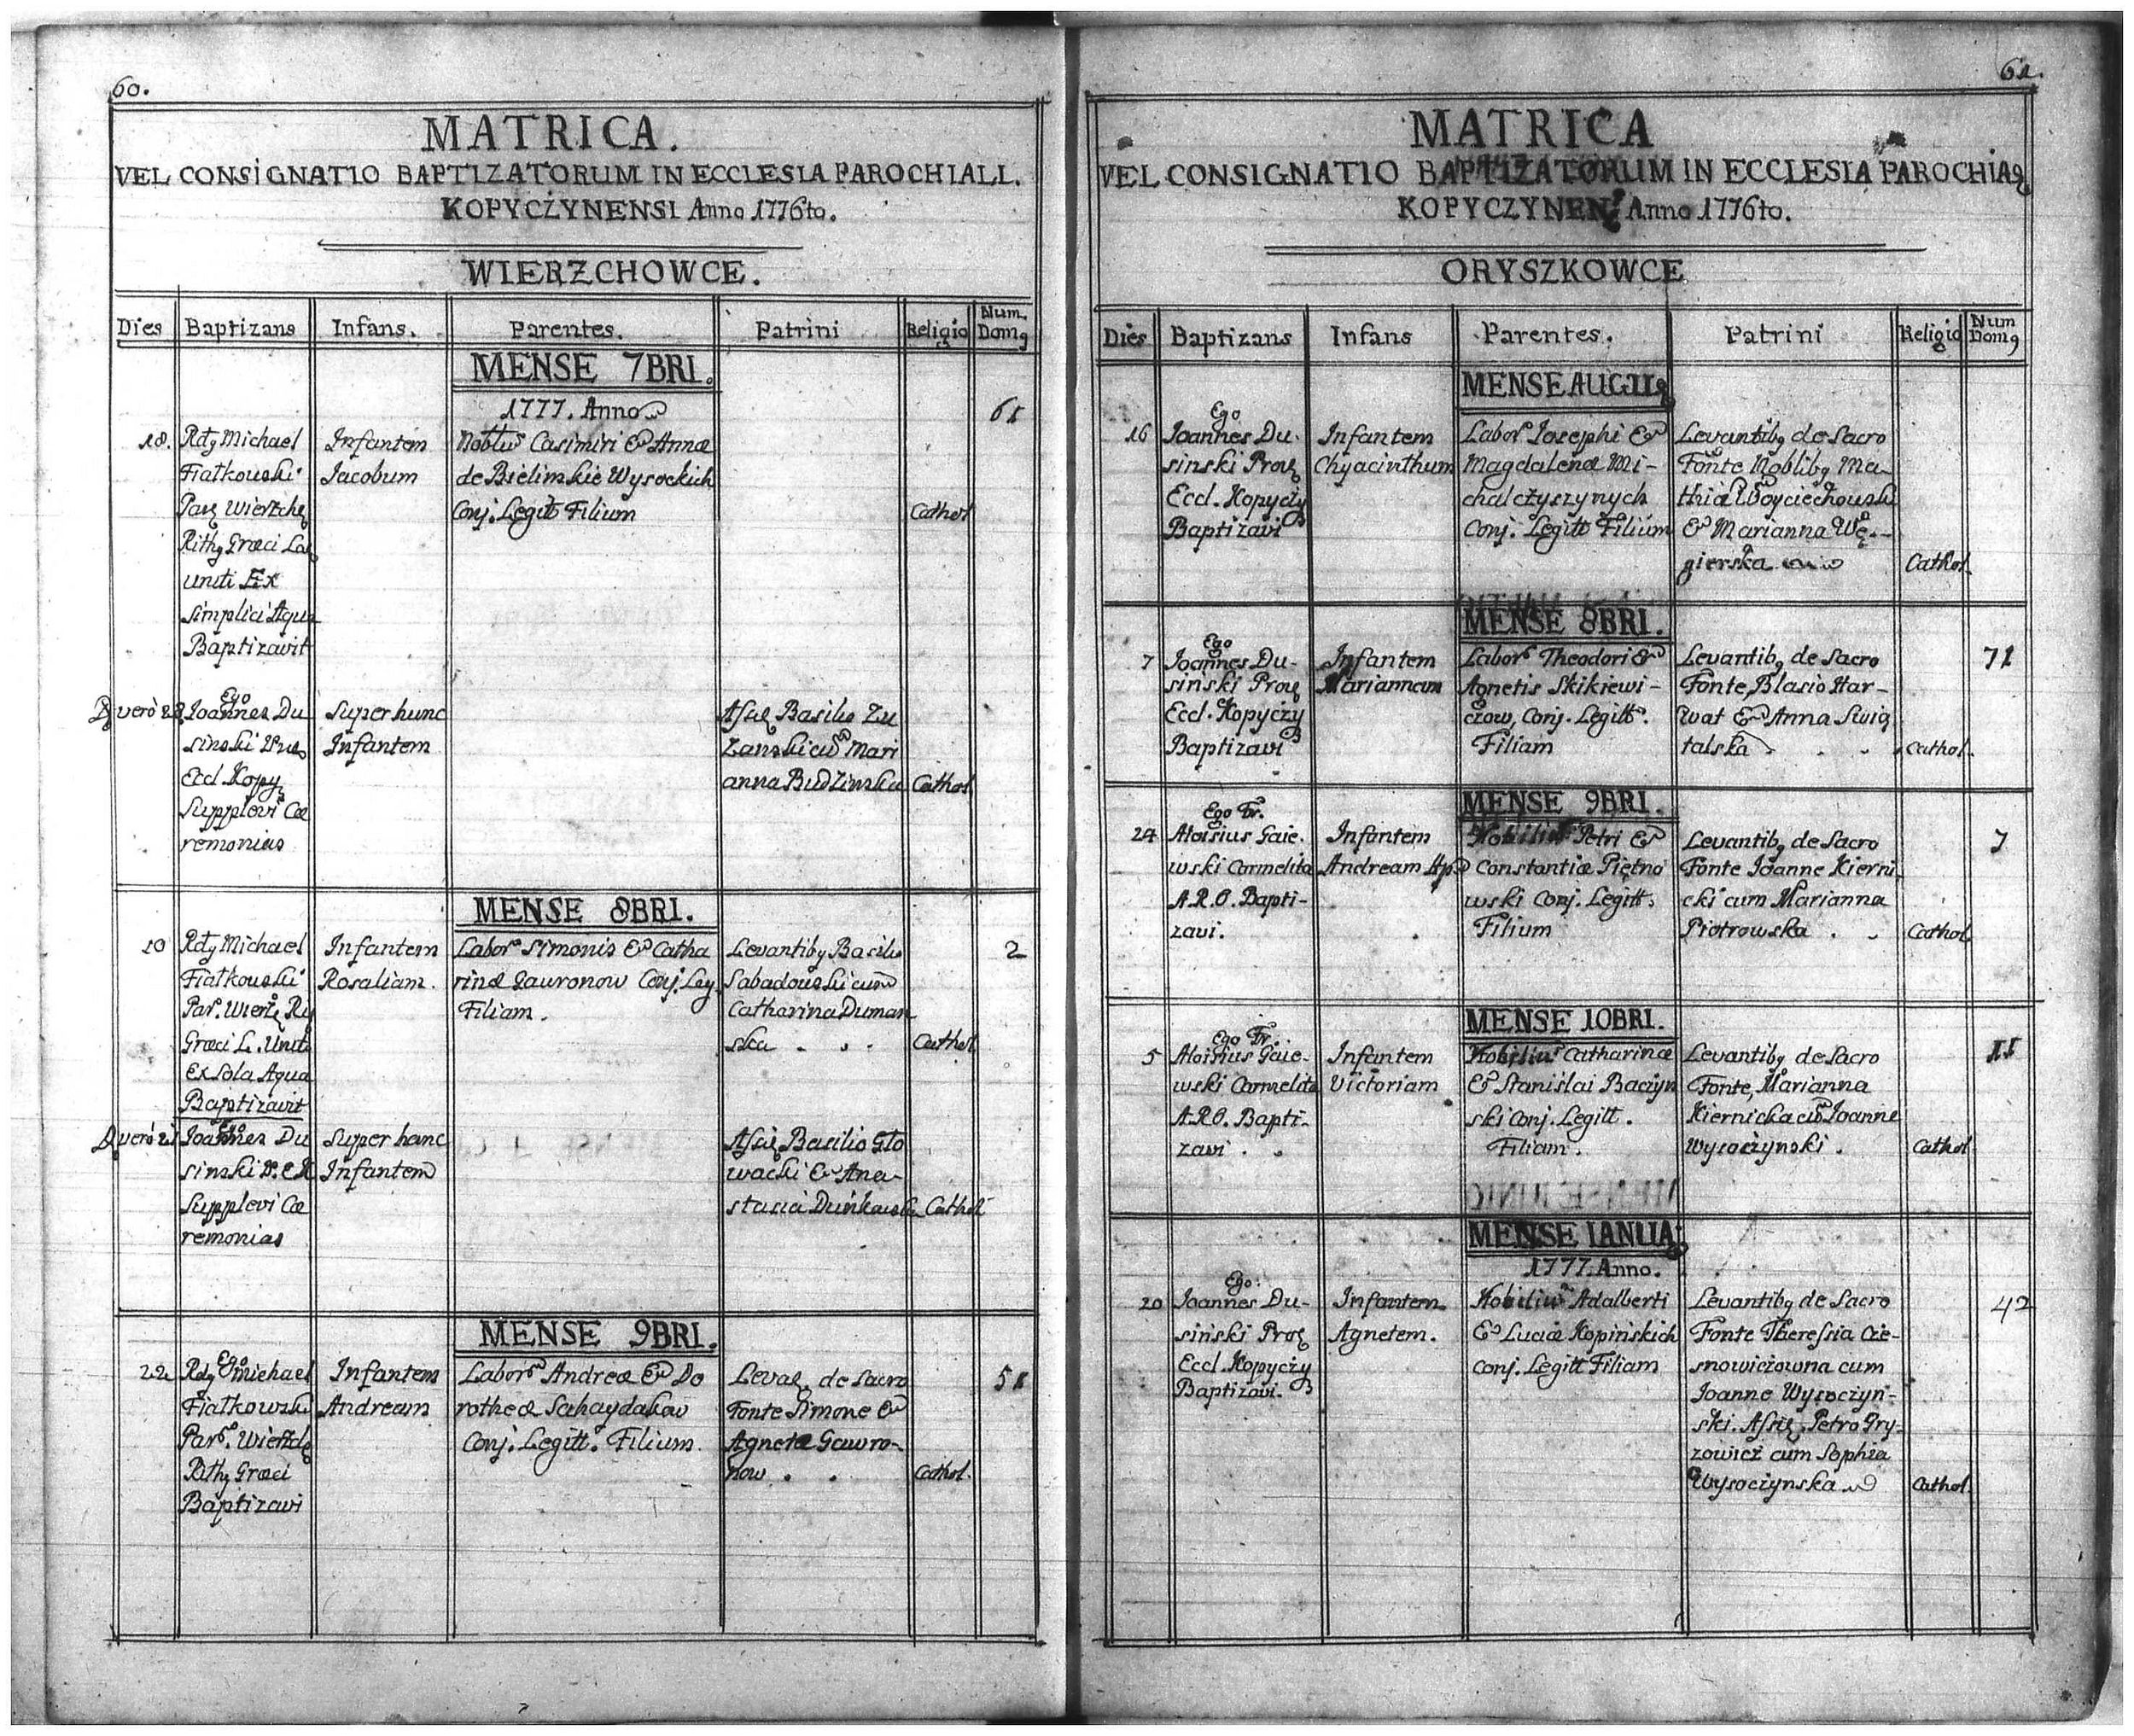 60.
MATRICA.
VEL CONSIGNATIO BAPTIZATORUM IN ECCLESIA PAROCHIALI.
KOPYCŻYNENSI Anno 1776to.
WIERZCHOWCE.
Dies Baptizans Infans. Parentes. Patrini Religio Num. Dom9
MENSE 7BRI.
1777. Anno
61
18.
Rdg Michael
Fiałkowski
Par
Ritg Græci
uniti Ex
Simplici Aqua
Baptizavit
Infantem
Jacobum
Casimiri & Annæ
de Bielimskie Wysockich
Conj. Legitt Filium
Cathol
D vero 28
Ego
Joannes Du
sinski
Eccl. Kopy
Supplevi Cæ
remonias
Super hunc
Infantem
Basilio Zu
Zanski cū Mari
anna Budzinska
Cathol
MENSE 8BRI.
10
Rdg Michael
Fiałkowski
Par.
Græci L. Unit
Ex Sola Aqua
Baptizavit
Infantem
Rosaliam.
Labor Simonis & Catha
rinæ Gauronow Conj. Leg.
Filiam.
Levantibg Basilio
Sabadouski cum
Catharina Duman
ska . . .
Cathol
2
D vero 21
Ego
Joannes Du
sinski P. E K
Supplevi Cæ
remonias
Super hanc
Infantem
Basilio Gło
wacki & Ana-
stasia
Cathol
MENSE 9BRI.
22
Rdg Ego Michael
Fiałkowski
Par.
Ritg Græci
Baptizavi
Infantem
Andream
Labor Andreæ & Do
rotheæ Sahaydakow
Conj. Legitt. Filium.
de Sacro
Fonte Simone &
Agneta Gawro-
now . .
Cathol.
51
61.
MATRICA
VEL CONSIGNATIO BAPTIZATORUM IN ECCLESIA PAROCHIAL
KOPYCZYNEN Anno 1776to.
ORYSZKOWCE
Dies Baptizans Infans Parentes. Patrini Religio Num Dom9
MENSE AUGII
16
Ego
Joannes Du-
sinski
Eccl. Kopyczy
Baptizavi
Infantem
Chyacinthum
Labor Josephi &
Magdalenæ Mi-
chalcżyszynych
Conj. Legitt Filium
Levantibg de Sacro
Fonte Noblibg Ma-
thia Woyciechouski
& Marianna Wę-
gierska
Cathol.
MENSE 8BRI.
7
Ego
Joannes Du-
sinski
Eccl. Kopyczy
Baptizavi
Infantem
Mariannam
Labor Theodori &
Agnetis Skikiewi-
czow, Conj. Legitt.
Filiam
Levantibg de Sacro
Fonte, Blasio Har-
wat & Anna Swig
talska . . .
Cathol.
71
MENSE 9BRI.
24
Ego Fr.
Aloisius Gaie-
wski Carmelita
A.R.O. Bapti-
zavi.
Infantem
Andream Ap
Nobilium Petri &
Constantiæ Piętno
wski Conj. Legitt.
Filium
Levantibg de Sacro
Fonte Joanne Kierni
cki cum Marianna
Piotrowska . .
Cathol
7
MENSE 10BRI.
5
Ego Fr.
Aloisius Gaie-
wski Carmelita
A.R.O. Bapti-
zavi . .
Infantem
Victoriam
Nobilium Catharinæ
& Stanislai Baczyn
ski Conj. Legitt.
Filiam.
Levantibg de Sacro
Fonte, Marianna
Kiernicka cū Joanne
Wysoczynski .
Cathol
11
MENSE IANUA
1777. Anno.
20
Ego
Joannes Du-
siński
Eccl. Kopyczy
Baptizavi.
Infantem
Agnetem.
Nobilium Adalberti
& Luciæ Kopińskich
Conj. Legitt Filiam
Levantibg de Sacro
Fonte Theressia Cie-
snowiczowna cum
Joanne Wysoczyn-
ski. Petro Gry-
zowicz cum Sophia
Wysoczynska
Cathol.
42